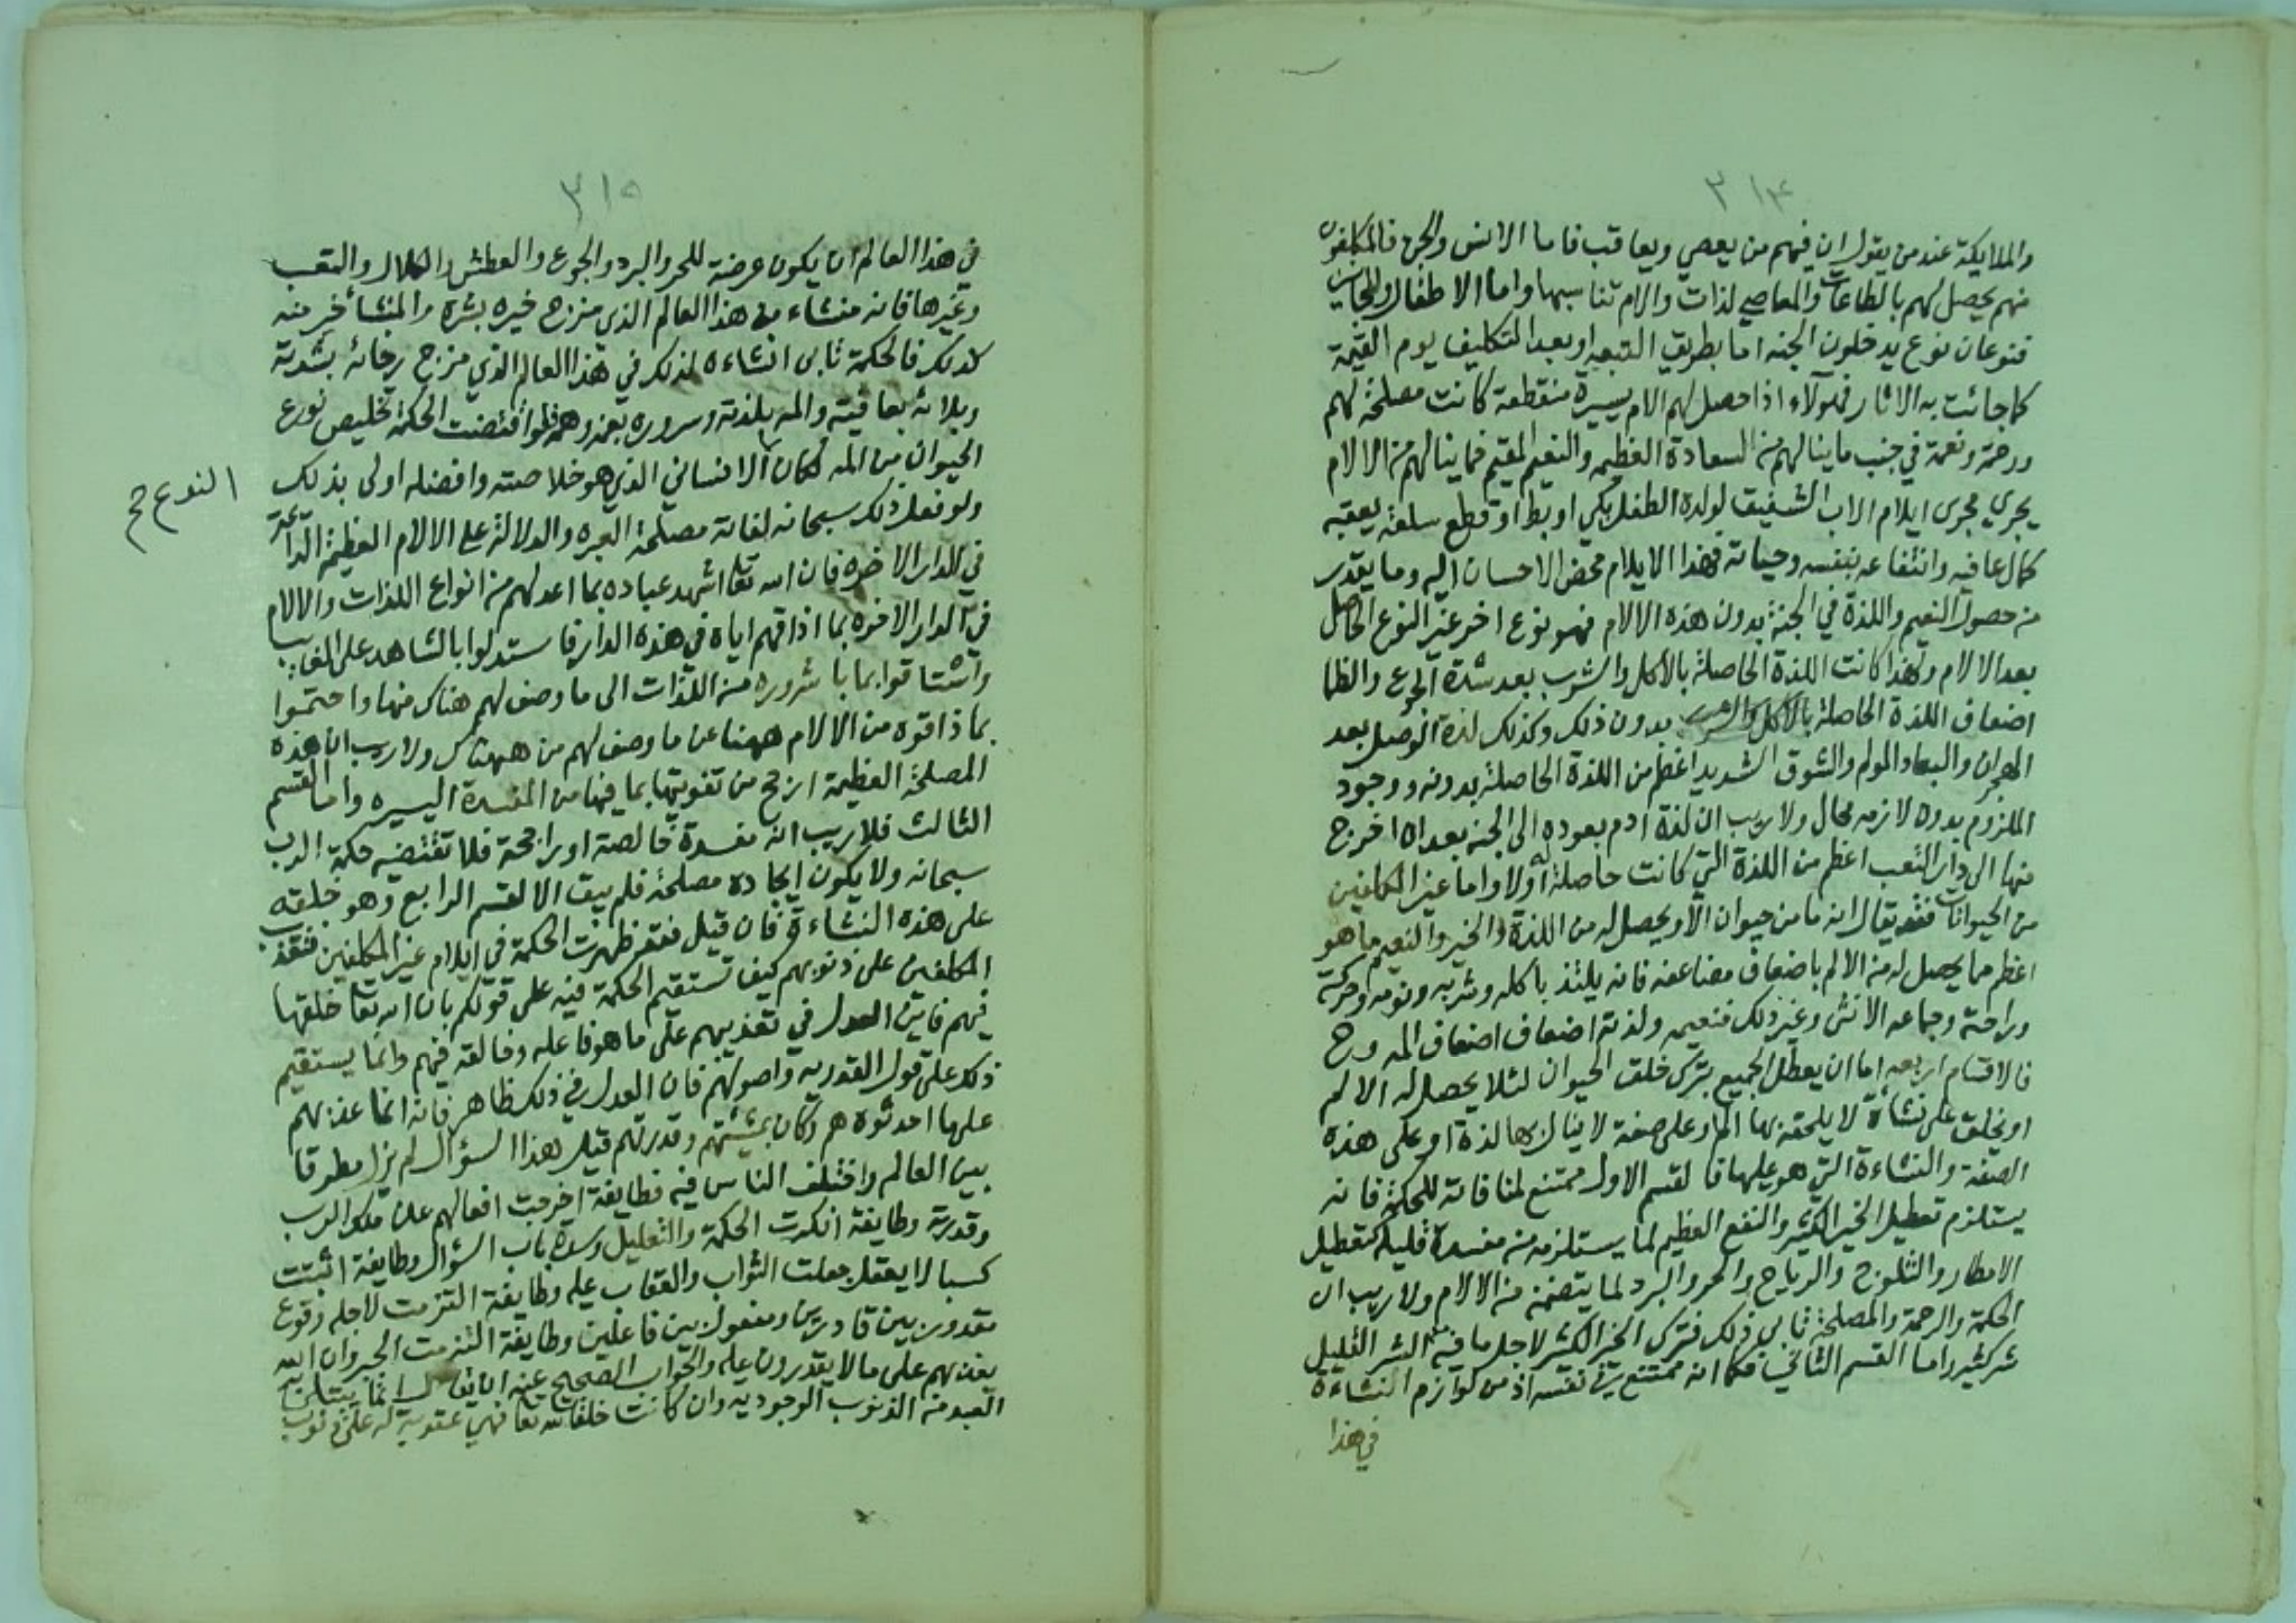 ٣١٤
والملايكة عند من يقول ان فيهم من يعصي ويعاقب فاما الانس والجن فالمكلفون
منهم يحصل لهم بالطاعات والمعاصي لذات والام تناسبها واما الاطفال والمجانين
فنوعان نوع يدخلون الجنه اما بطريق التبعيه او بعد التكليف يوم القيمة
كما جائت به الاثار فهولاء اذا حصل لهم الام يسيرة منقطعة كانت مصلحة لهم
ورحمة ونعمة في جنب ما ينالهم من السعادة العظيمه والنعيم المقيم فما ينالهم من الالام
يجري مجرى ايلام الاب الشفيق لولده الطفل بكي او بط او قطع سلعة يعقبه
كمال عافيه وانتفاعه بنفسه وحياته فهذا الايلام محض الاحسان اليه وما يقدر
من حصول النعيم واللذة في الجنة بدون هذه الالام فهو نوع اخر غير النوع الحاصل
بعد الالام ولهذا كانت اللذة الحاصلة بالاكل والشرب بعد شدة الجوع والظما
اضعاف اللذة الحاصلة بالاكل والشرب بدون ذلك وكذلك لذة الوصل بعد
الهجران والبعاد المولم والشوق الشديد اعظم من اللذة الحاصلة بدونه ووجود
الملزوم بدون لازمه محال ولا ريب ان لذة ادم بعوده الى الجنه بعد ان اخرج
منها الى دار التعب اعظم من اللذة التي كانت حاصلة له اولا واما غير المكلفين
من الحيوانات فقد يقال انه ما من حيوان الا ويحصل له من اللذة والخير والنعيم ما هو
اعظم مما يحصل له من الالم باضعاف مضاعفه فانه يلتذ باكله وشربه ونومه وحركته
وراحته وجماعه الانثى وغير ذلك فنعيمه ولذته اضعاف اضعاف المه وح
فالاقسام اربعه اما ان يعطل الجميع بترك خلق الحيوان لئلا يحصل له الالم
او يخلق على نشأة لا يلحقه بها الم او على صفة لا ينال بها لذة او على هذه
الصفة والنشاءة التي هو عليها فالقسم الاول ممتنع لمنافاته للحكمة فانه
يستلزم تعطيل الخير الكثير والنفع العظيم لما يستلزمه من مفسدة قليله كتعطيل
الامطار والثلوج والرياح والحر والبرد لما يتضمنه من الالام ولا ريب ان
الحكمة والرحمة والمصلحة تابي ذلك فترك الخير الكثير لاجل ما فيه من الشر القليل
شر كثير واما القسم الثاني فكما انه ممتنع في نفسه اذ من لوازم النشاءة
في هذا
٣١٥
في هذا العالم ان يكون عرضة للحر والبرد والجوع والعطش والكلال والتعب
وغيرها فانه منشاء من هذا العالم الذي مزج خيره بشره والمنشأ خير منه
كذلك فالحكمة تابى انشاءه لذلك في هذا العالم الذي مزج رخائه بشدته
وبلائه بعافيته والمه بلذته وسروره بغمه وهمه فلو اقتضت الحكمة تخليص نوع
الحيوان من المه لكان الانساني الذي هو خلاصته وافضله اولى بذلك
النوع صح
ولو فعل ذلك سبحانه لفاتة مصلحة العبره والدلالة على الالام العظيمة الدائمة
في الدار الاخره فان الله تعا اشهد عباده بما اعد لهم من انواع اللذات والالام
في الدار الاخره بما اذاقهم اياه في هذه الدار فاستدلوا بالشاهد على الغايب
واشتاقوا بما باشروره من اللذات الى ما وصف لهم هناك منها واحتموا
بما ذاقوه من الالام ههنا عن ما وصف لهم من ههناك ولا ريب ان هذه
المصلحة العظيمة ارجح من تفويتها بما فيها من المفسدة اليسيره واما القسم
الثالث فلا ريب انه مفسدة خالصة او راجحة فلا تقتضيه حكمة الرب
سبحانه ولا يكون ايجاده مصلحة فلم يبق الا القسم الرابع وهو خلقه
على هذه النشاءة فان قيل فقد ظهرت الحكمة في ايلام غير المكلفين فتعذيب
المكلفين على ذنوبهم كيف تستقيم الحكمة فيه على قولكم بان الله تعا خلقها
فيهم فاين العدل في تعذيبهم على ما هو فاعله وخالقه فيهم وانما يستقيم
ذلك على قول القدريه واصولهم فان العدل في ذلك ظاهر فانه انما عذبهم
عليها احدثوه هم وكان بمشيئتهم وقدرتهم قيل هذا السؤال لم يزل مطروقا
بين العالم واختلف الناس فيه فطايفة اخرجت افعالهم عن ملك الرب
وقدرته وطايفة انكرت الحكمة والتعليل وسدة باب السؤال وطايفة اثبتت
كسبا لا يعقل جعلت الثواب والعقاب عليه وطايفة التزمت لاجله وقوع
مقدور بين قادرين ومفعول بين فاعلين وطايفة التزمت الجبر وان الله
يعذبهم على ما لا يقدرون عليه والجواب الصحيح عنه ان يقال انما يبتلى
العبد من الذنوب الوجوديه وان كانت خلقا لله تعا فهي عقوبة له على ذنوب